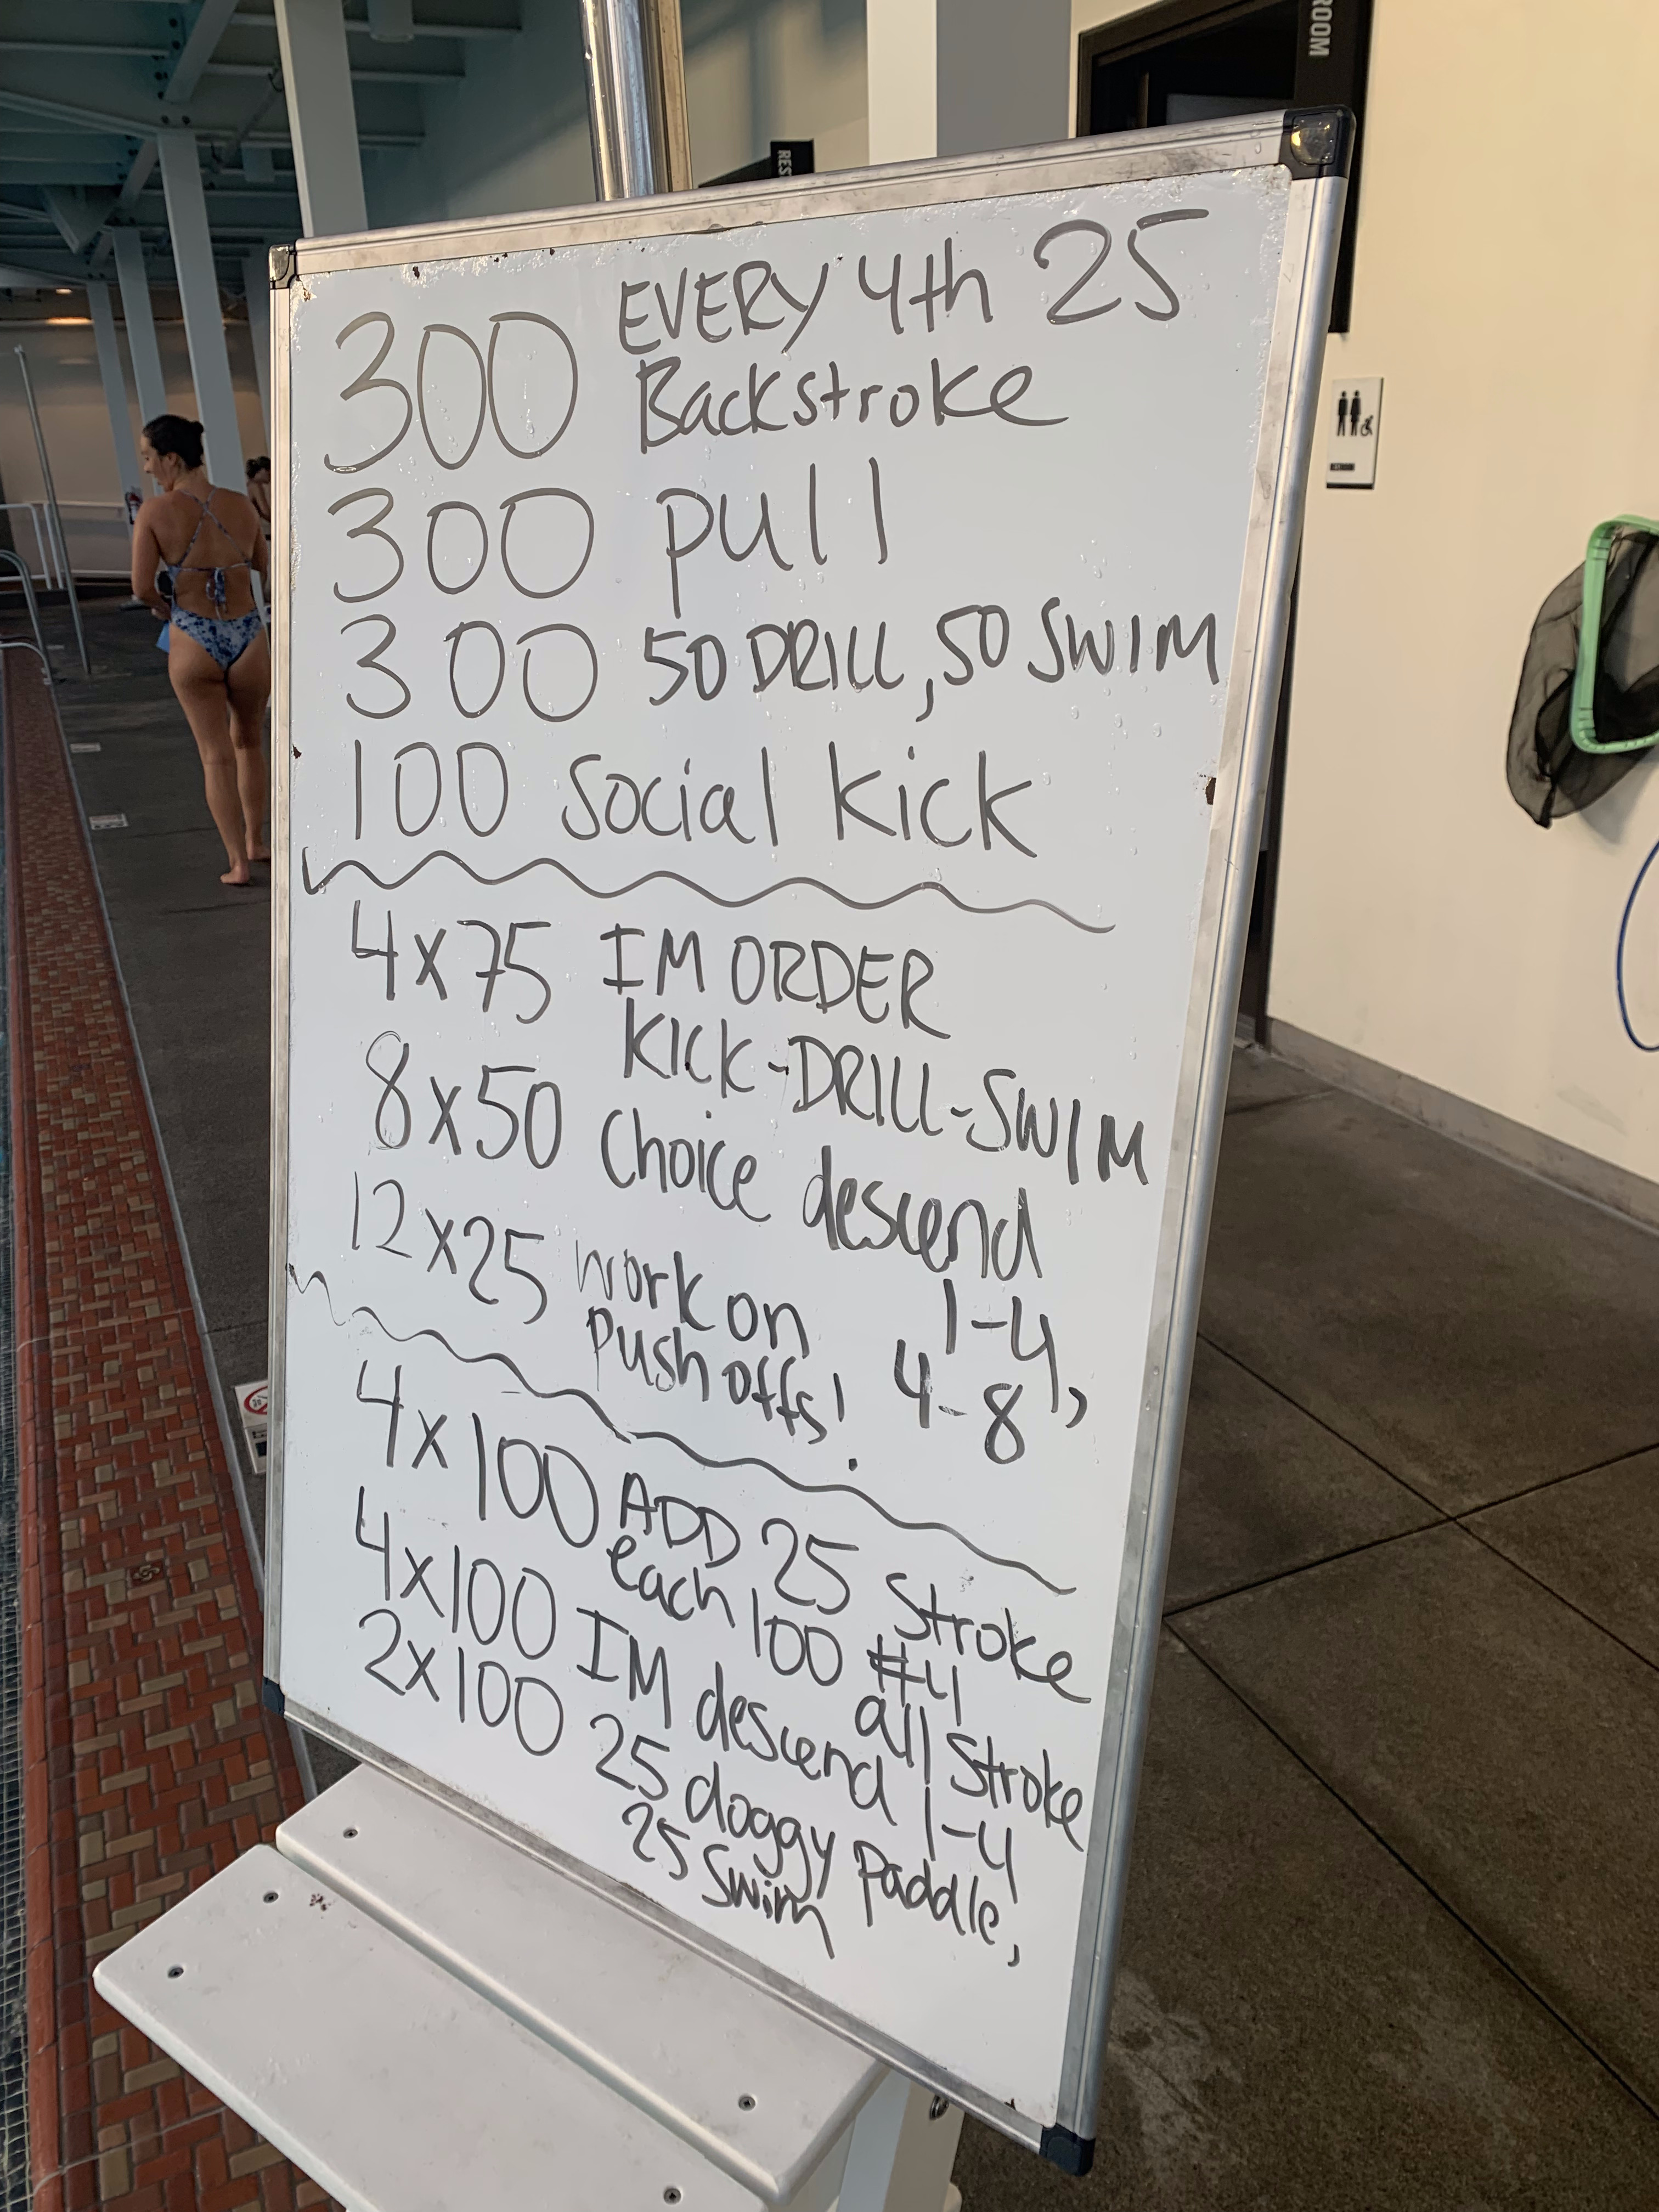 ROOM
RES
300 EVERY 4th 25
Backstroke
300 pull
300 50 DRILL, 50 SWIM
100 Social Kick
4x75 IM ORDER
KICK-DRILL-SWIM
8x50 Choice descend
1-4,
4-8
12x25 work on
push offs!
4x100 ADD 25 Stroke
each 100 #4
all stroke
4x100 IM descend 1-4
2x100 25 doggy paddle,
25 swim